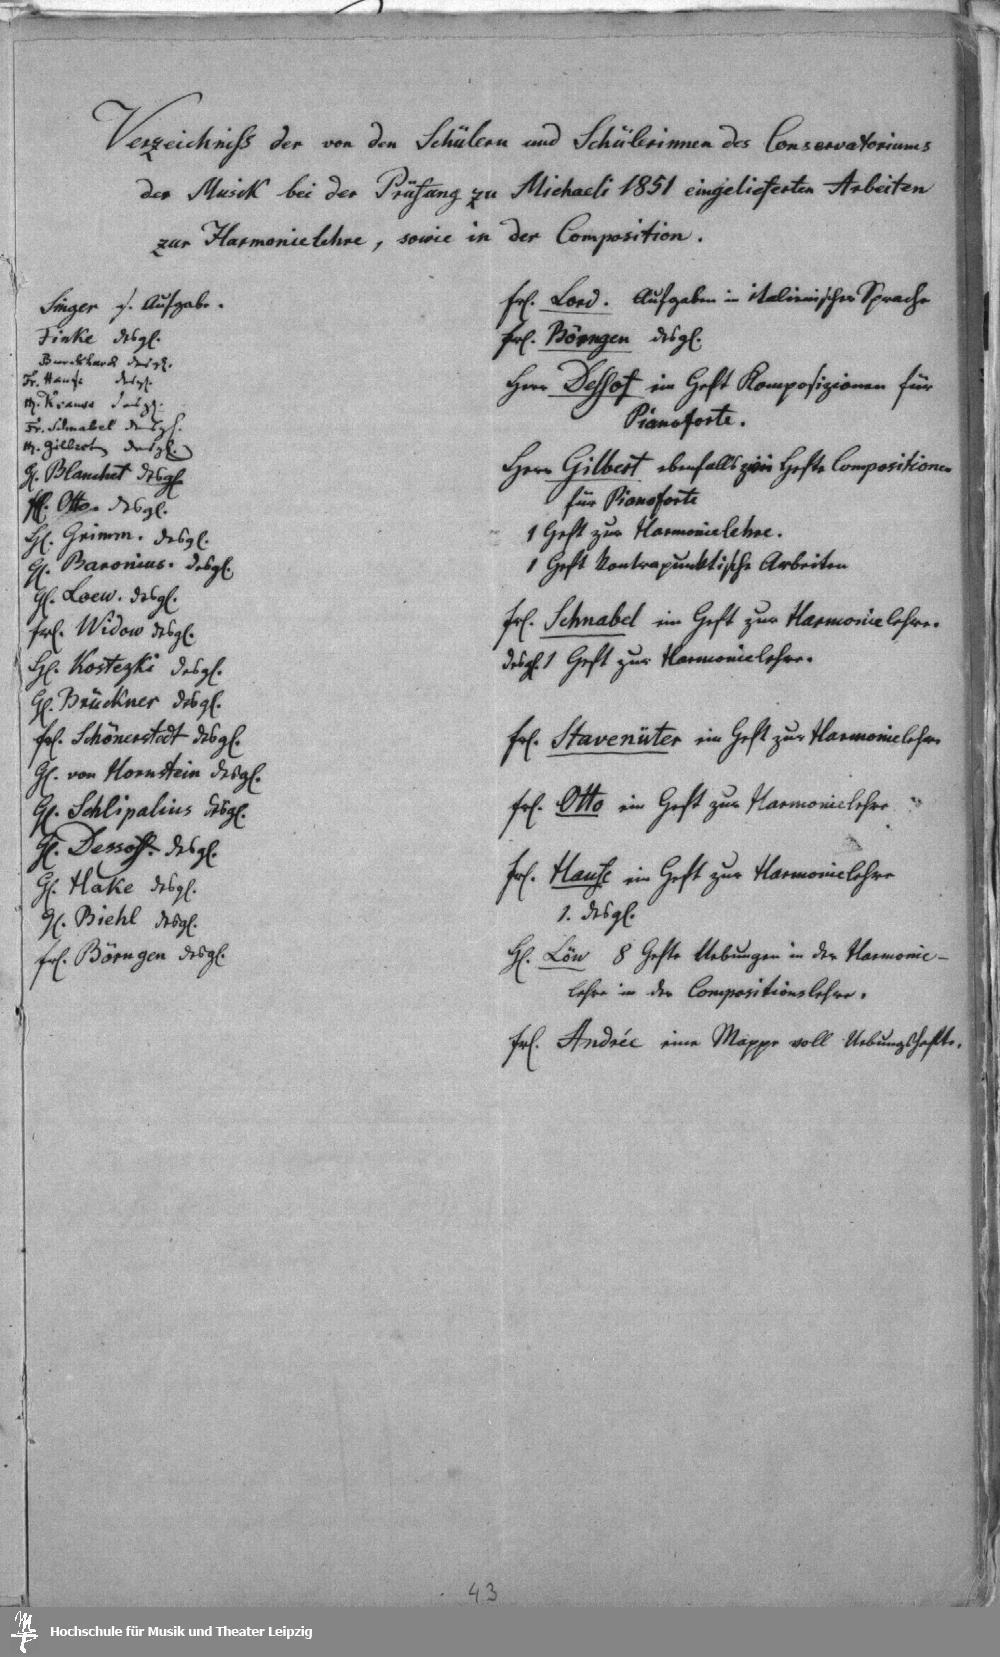 Verzeichniss der von den Schülern und Schülerinnen des Conservatoriums
der Musik bei der Prüfung zu Michaeli 1851 eingelieferten Arbeiten
zur Harmonielehre, sowie in der Composition.
Singer s. Aufgabe.
Finke desgl.
Burckhardt desgl.
Fr. Hause desgl.
H. Krause desgl.
Fr. Schnabel desgl.
H. Gilbert desgl.
H. Blanchet desgl.
frl. Otto. desgl.
H. Grimm. desgl.
H. Baronius. desgl.
H. Loew. desgl.
frl. Widow desgl.
H. Kostezki desgl.
H. Brückner desgl.
frl. Schönerstedt desgl.
H. von Hornstein desgl.
H. Schlipalius desgl.
H. Dessoff. desgl.
H. Hake desgl.
H. Biehl desgl.
frl. Börngen desgl.
frl. Lord. Aufgaben in italienischer Sprache
frl. Börngen desgl.
Herr Dessof ein Heft Komposizionen für
Pianoforte.
Herr Gilbert ebenfalls ein Hefte Compositionen
für Pianoforte
1 Heft zur Harmonielehre.
1 Heft Kontrapunktische Arbeiten
frl. Schnabel ein Heft zur Harmonielehre.
desgl. 1 Heft zur Harmonielehre.
frl. Stavenüter ein Heft zur Harmonielehre
frl. Otto ein Heft zur Harmonielehre
frl. Hause ein Heft zur Harmonielehre
1. desgl.
H. Löw 8 Hefte Uebungen in der Harmonie-
lehre in der Compositionslehre.
frl. Andrée eine Mappe voll Uebungshefte.
43
Hochschule für Musik und Theater Leipzig